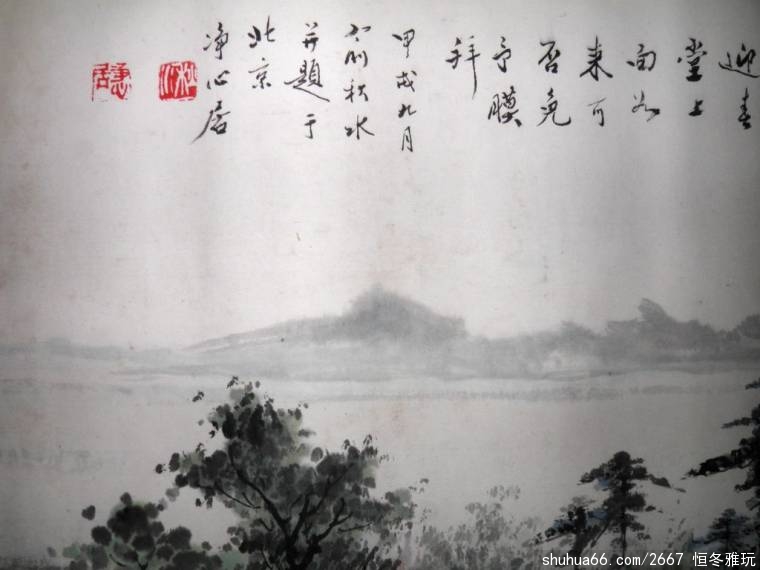 迎春
堂上
面若
来可
否免
予膜
拜
甲戌九月
俞秋水
并题于
北京
净心居
shuhua66.com/2667 恒冬雅玩